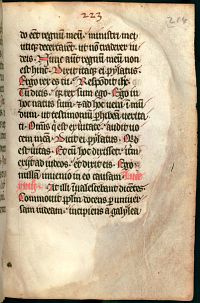 223
214
do eēt regnū meū. ministri mei
utiq; decertarēt. ut nō traderer iu
deis. Nunc aūt regnū meū non
est hinc. Dixit itaq; ei pylatus.
Ergo rex es tu. Respōdit ihc
Tu dicis. q̄r rex sum ego. Ego in
hoc natus sum. & ad hoc veni ī mū
dum. ut testimoniū phibeā verita
ti. Omīs q̄ est ex vitate. audit vo
cem meā. Dicit ei pylatus. Qd
est vitas. Et cū hoc dixisset. itm
exiit ad iudeos. et dixit eis. Ego
nullā inuenio in eo causam
At illi īualescebant dicētes.
Commouit pplm docens p uniuer
sam iudeam. incipiens a galylea